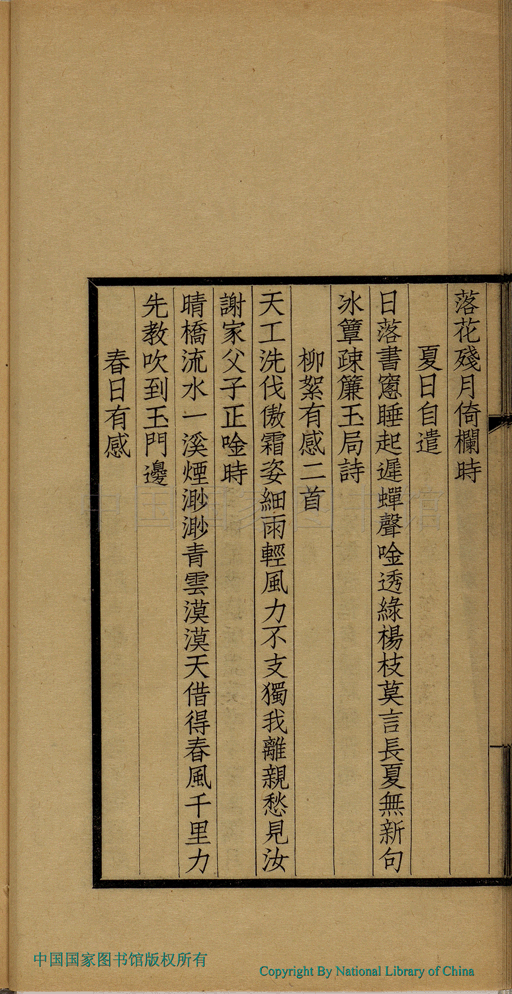 落花殘月倚欄時
夏日自遣
日落書窻睡起遲蟬聲唫透綠楊枝莫言長夏無新句
冰簟疎簾玉局詩
柳絮有感二首
天工洗伐傲霜姿細雨輕風力不支獨我離親愁見汝
謝家父子正唫時
晴橋流水一溪煙渺渺青雲漠漠天借得春風千里力
先教吹到玉門邊
春日有感
中国国家图书馆
中国国家图书馆版权所有
Copyright By National Library of China